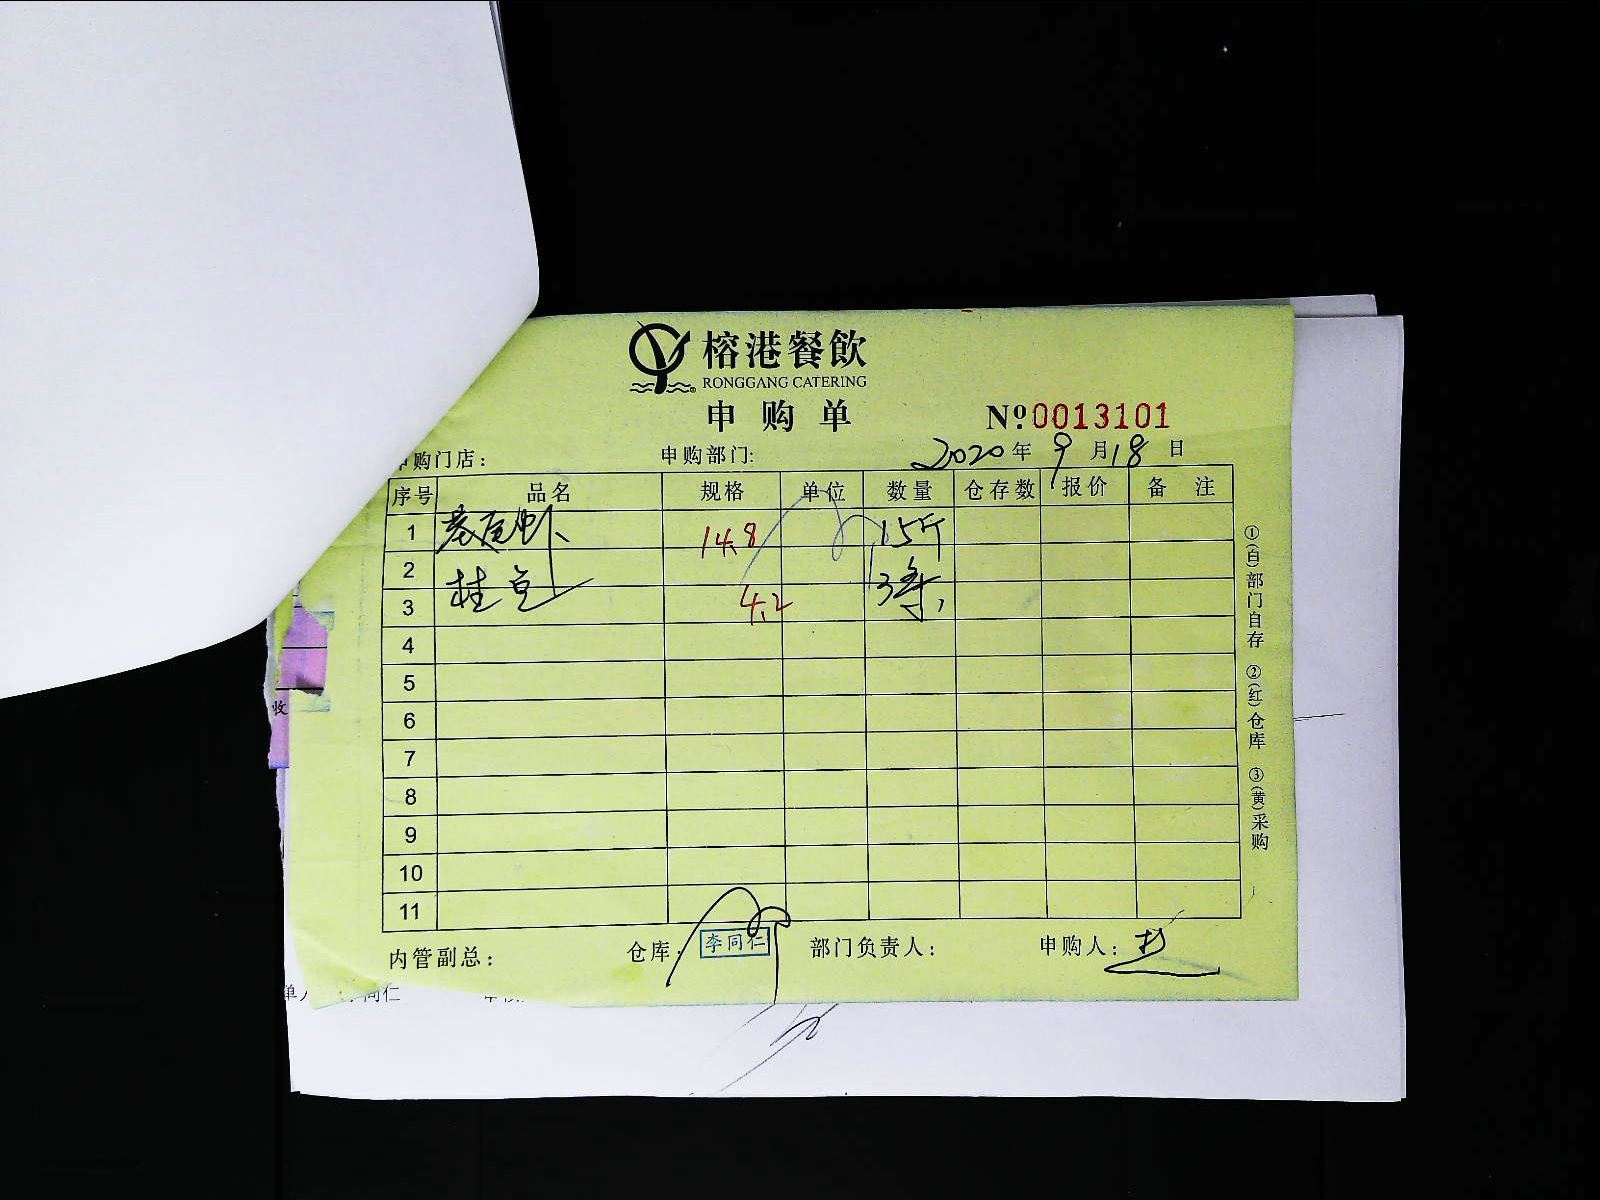 榕港餐飲
RONGGANG CATERING
申购单 Nº0013101
申购门店: 申购部门: 2020年9月18日
序号 品名 规格 单位 数量 仓存数 报价 备注
1 基尾虾 14.8 15斤
2 桂鱼 3条
3 4.2
4
5
6
7
8
9
10
11
内管副总: 仓库: 李同仁 部门负责人: 申购人:
①(白)部门自存 ②(红)仓库 ③(黄)采购
收
同仁